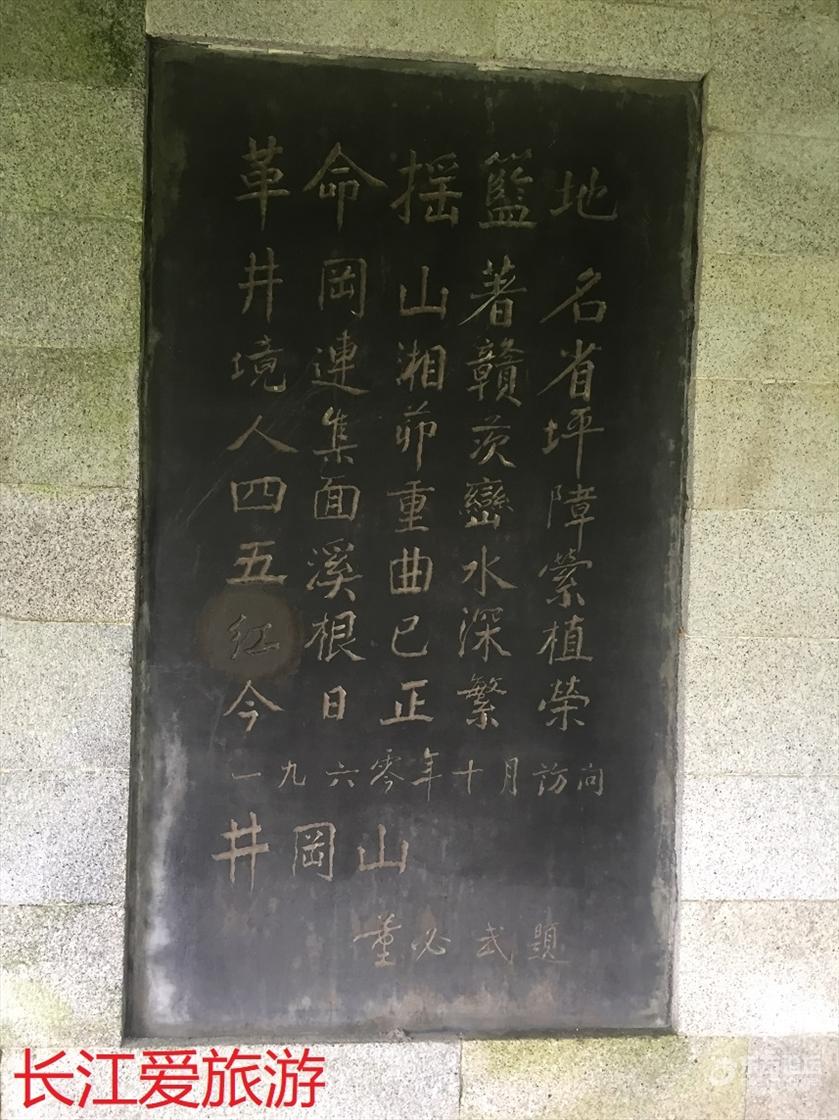 革命摇籃地
井岡山著名
境連湘贛省
人集茆茨坪
四面重巒障
五溪曲水縈
紅根已深植
今日正繁榮
一九六零年十月訪问
井岡山
董必武題
长江爱旅游